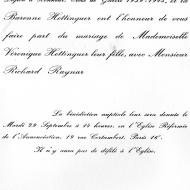 Baronne Hottinguer ont l'honneur de vous
faire part du mariage de Mademoiselle
Véronique Hottinguer leur fille, avec Monsieur
Richard Raynar
La bénédiction nuptiale leur sera donnée le
Mardi 29 Septembre à 16 heures, en l'Église Réformée
de l'Annonciation, 19 rue Cortambert, Paris XVIe
Il n'y aura pas de défilé à l'Église.